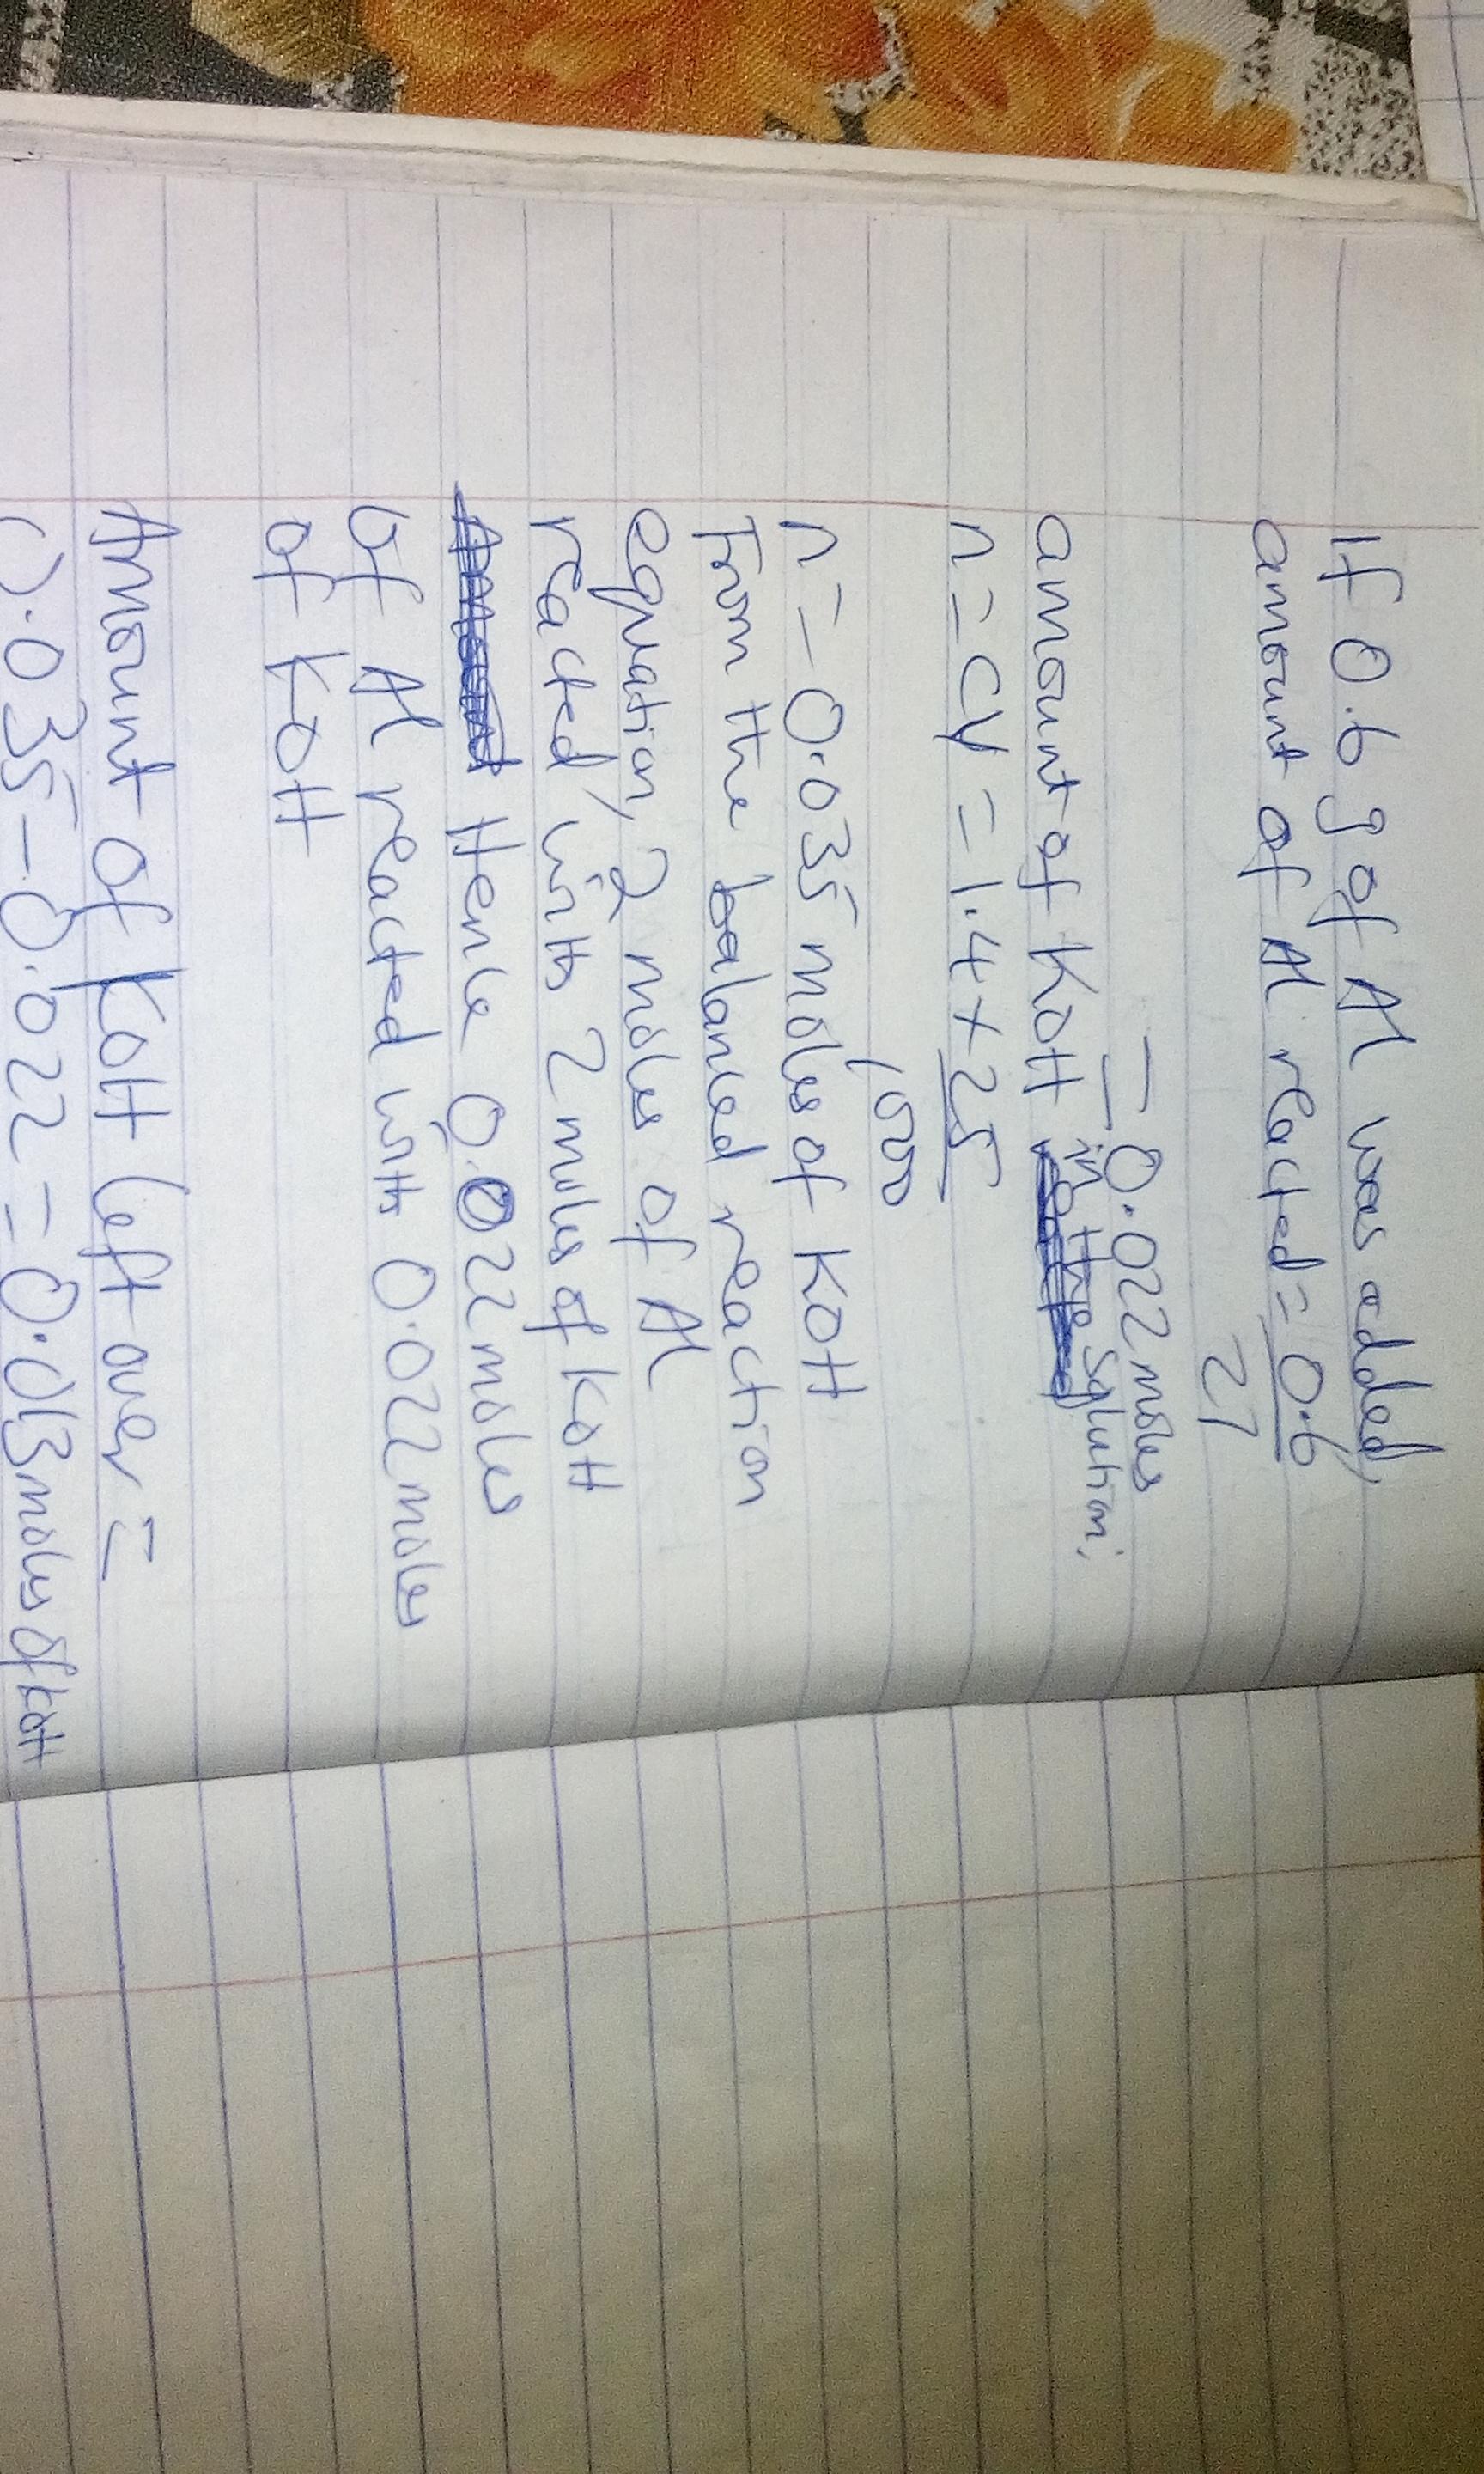 If 0.6 g of Al was added,
amount of Al reacted = 0.6
27
= 0.022 moles
amount of KOH in the solution;
n = CV = 1.4 × 25
1000
n = 0.035 moles of KOH
From the balanced reaction
equation, 2 moles of Al
reacted with 2 moles of KOH
Hence 0.022 moles
of Al reacted with 0.022 moles
of KOH
Amount of KOH left over =
0.035 - 0.022 = 0.013 moles of KOH